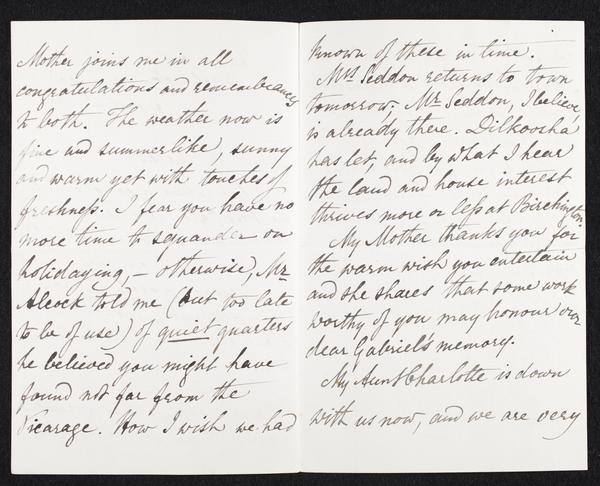 Mother joins me in all
congratulations and remembrances
to both. The weather now is
fine and summerlike, sunny
and warm yet with touches of
freshness. I fear you have no
more time to squander on
holidaying, – otherwise, Mr
Alcock told me (but too late
to be of use) of quiet quarters
he believed you might have
found not far from the
Vicarage. How I wish we had
known of these in time.
Mrs Seddon returns to town
tomorrow; Mr Seddon, I believe,
is already there. Dilkoosha
has let, and by what I hear
the land and house interest
thrives more or less at Birchington.
My Mother thanks you for
the warm wish you entertain
and she shares that some work
worthy of you may honour our
dear Gabriel's memory.
My Aunt Charlotte is down
with us now, and we are very